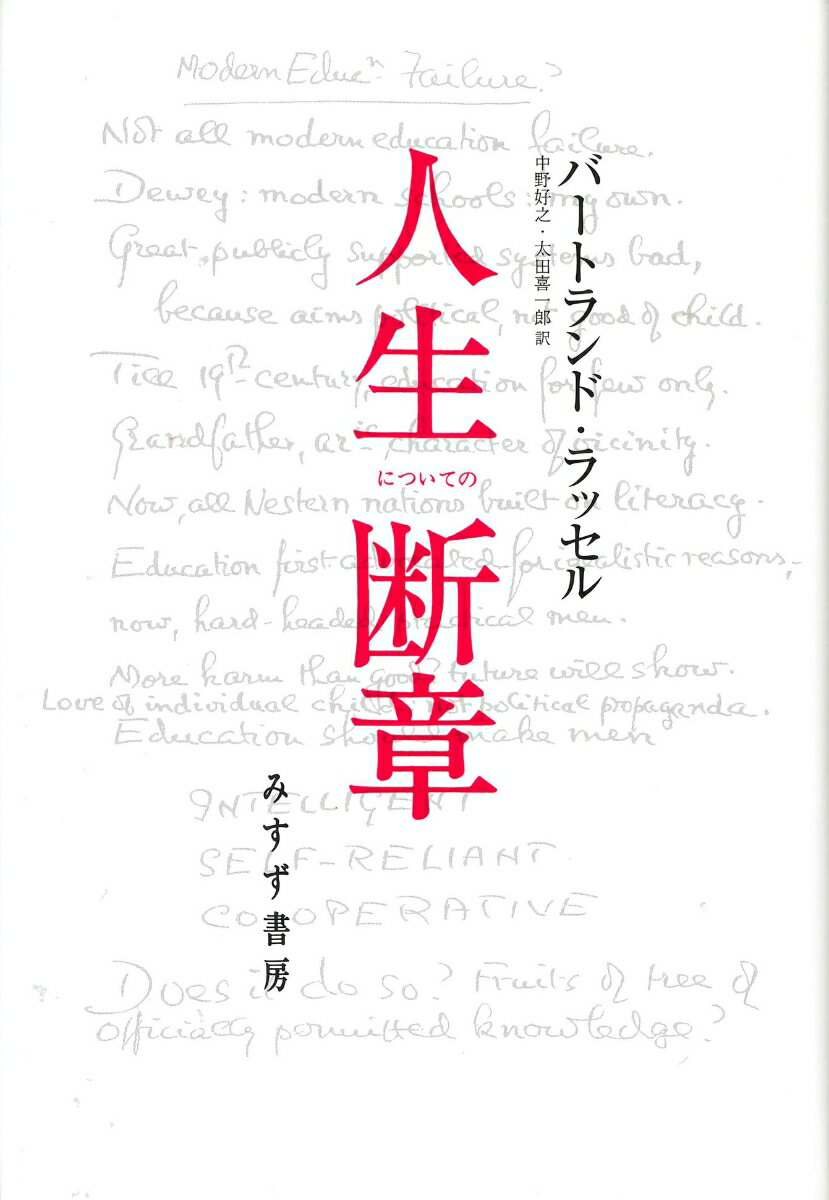 バートランド・ラッセル
中野好之・太田喜一郎訳
人生についての断章
みすず書房
Modern Educn Failure?
Not all modern education failure.
Dewey: modern schools: my own.
Great publicly supported systems bad,
because aims political, not good of child.
Till 19th century, education for few only.
Grandfather, character of vicinity.
Now, all Western nations built on literacy.
Education first advocated for idealistic reasons,
now, hard-headed practical men.
More harm than good? Future will show.
Love of individual child: not political propaganda.
Education should make men
INTELLIGENT
SELF-RELIANT
CO-OPERATIVE
Does it do so? Fruits of tree of
officially permitted knowledge?